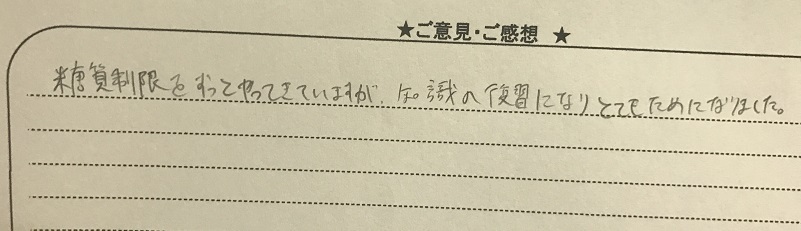 ★ご意見・ご感想 ★
糖質制限をずっとやってきていますが、知識の復習になりとてもためになりました。